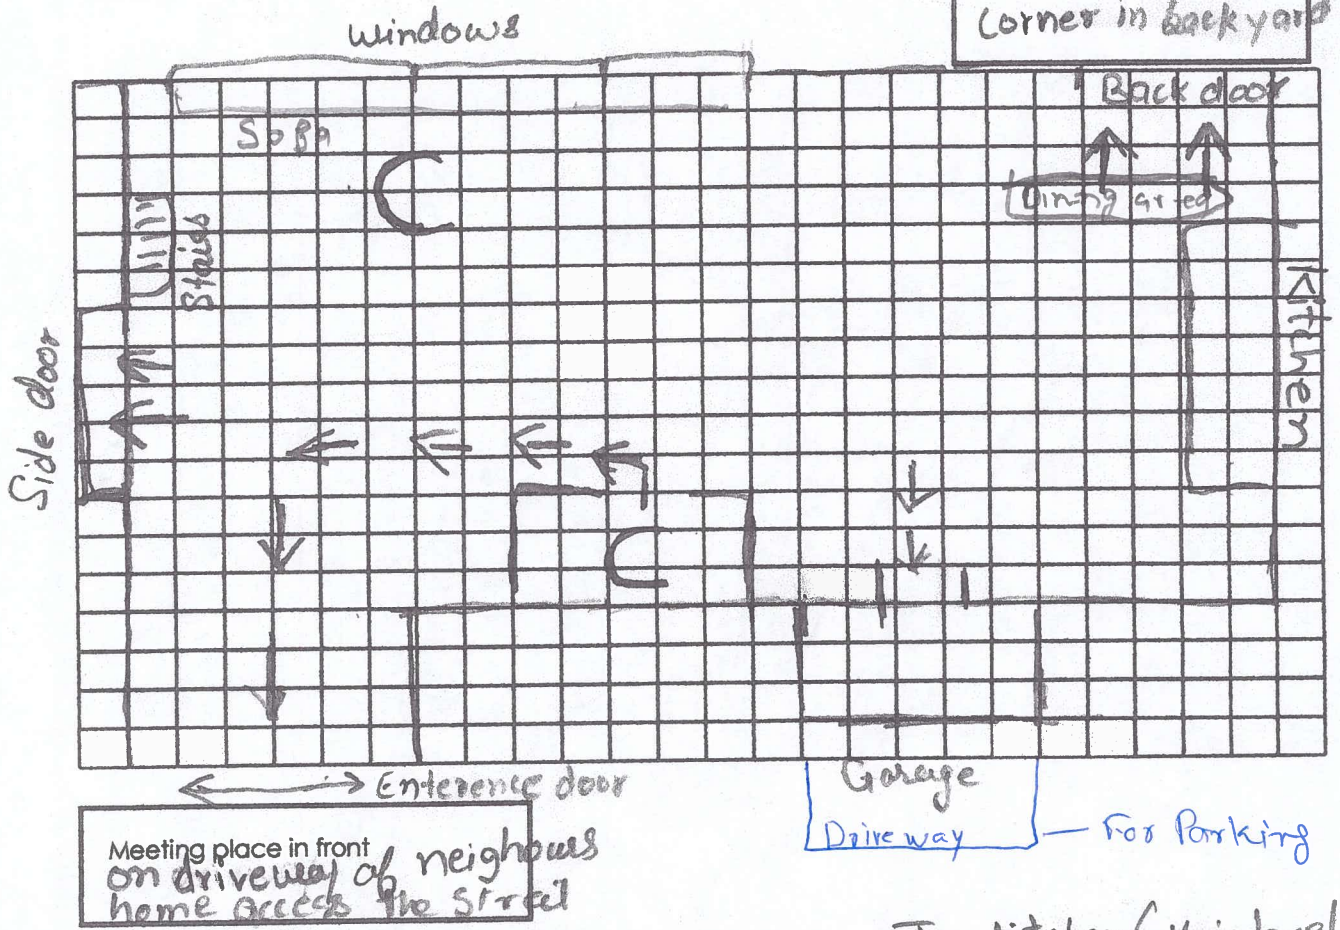 corner in backyard
Windows
Back door
Sofa
Dining area
Stairs
Kitchen
Side door
Enterence door
Garage
Drive way
For Parking
Meeting place in front
on driveway of neighbours
home access the street